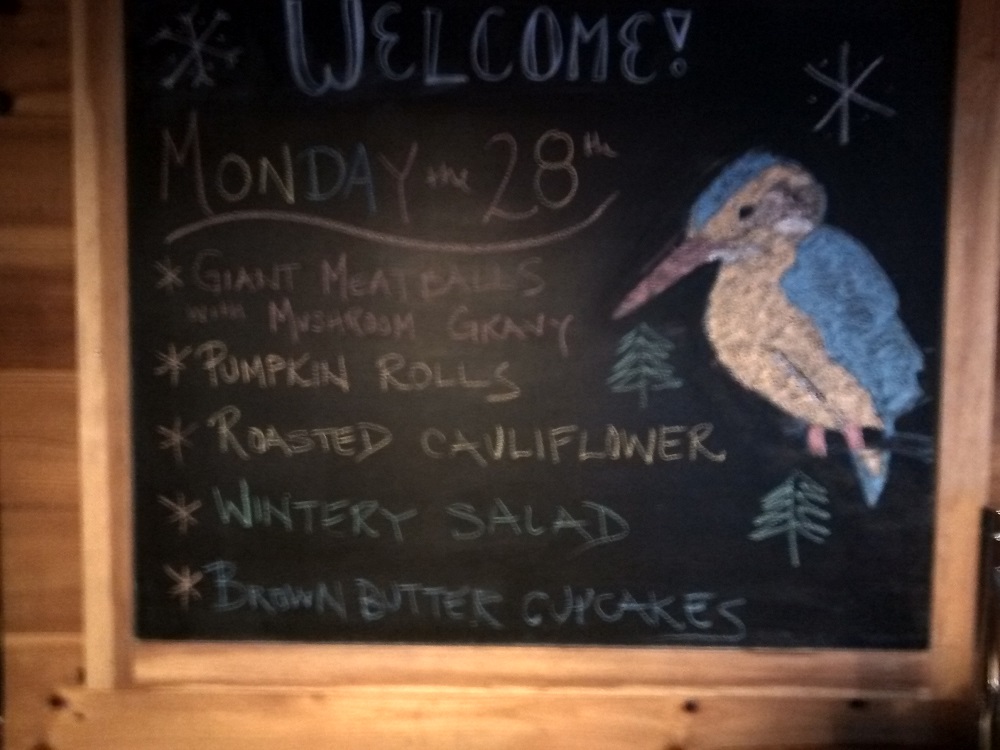 WELCOME!
MONDAY the 28th
* GIANT MEATBALLS
with MUSHROOM GRAVY
* PUMPKIN ROLLS
* ROASTED CAULIFLOWER
* WINTERY SALAD
* BROWN BUTTER CUPCAKES